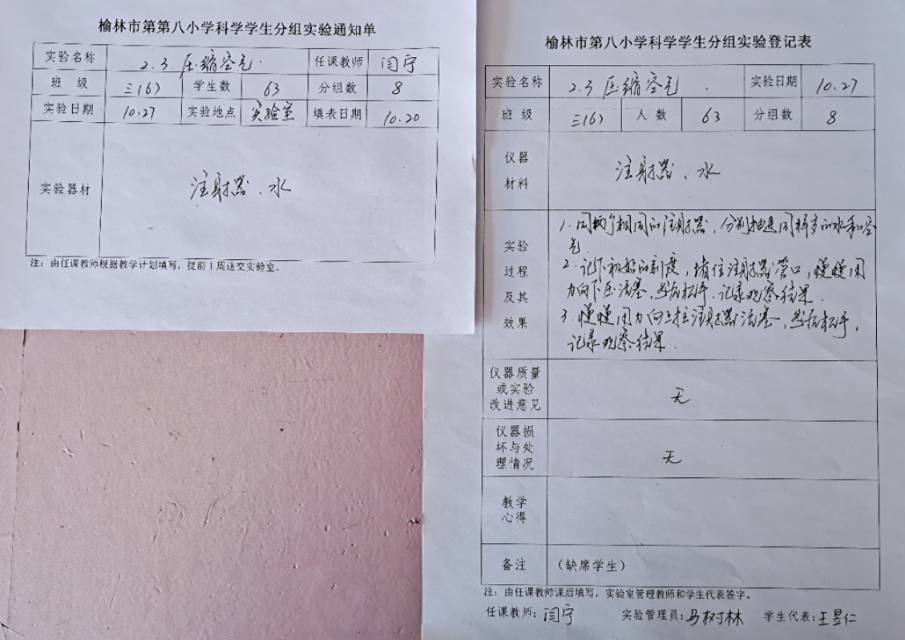 榆林市第第八小学科学学生分组实验通知单
实验名称 2.3.压缩空气. 任课教师 闫宁
班 级 三(6) 学生数 63 分组数 8
实验日期 10.27 实验地点 实验室 填表日期 10.20
实验器材 注射器、水
注：由任课教师根据教学计划填写，提前1周送交实验室。
榆林市第八小学科学学生分组实验登记表
实验名称 2.3 压缩空气. 实验日期 10.27
班 级 三(6) 人 数 63 分组数 8
仪器
材料
注射器、水
实验
过程
及其
效果
1.用两个相同的注射器，分别抽进同样多的水和空
气.
2.记下初始的刻度，堵住注射器管口，慢慢用
力向下压活塞，然后松手.记录观察结果.
3.慢慢用力向上拉注射器活塞，然后松手，
记录观察结果.
仪器质量
或实验
改进意见
无
仪器损
坏与处
理情况
无
教学
心得
备注 （缺席学生）
注：由任课教师课后填写，实验室管理教师和学生代表签字。
任课教师：闫宁 实验管理员：马树林 学生代表：王昱仁